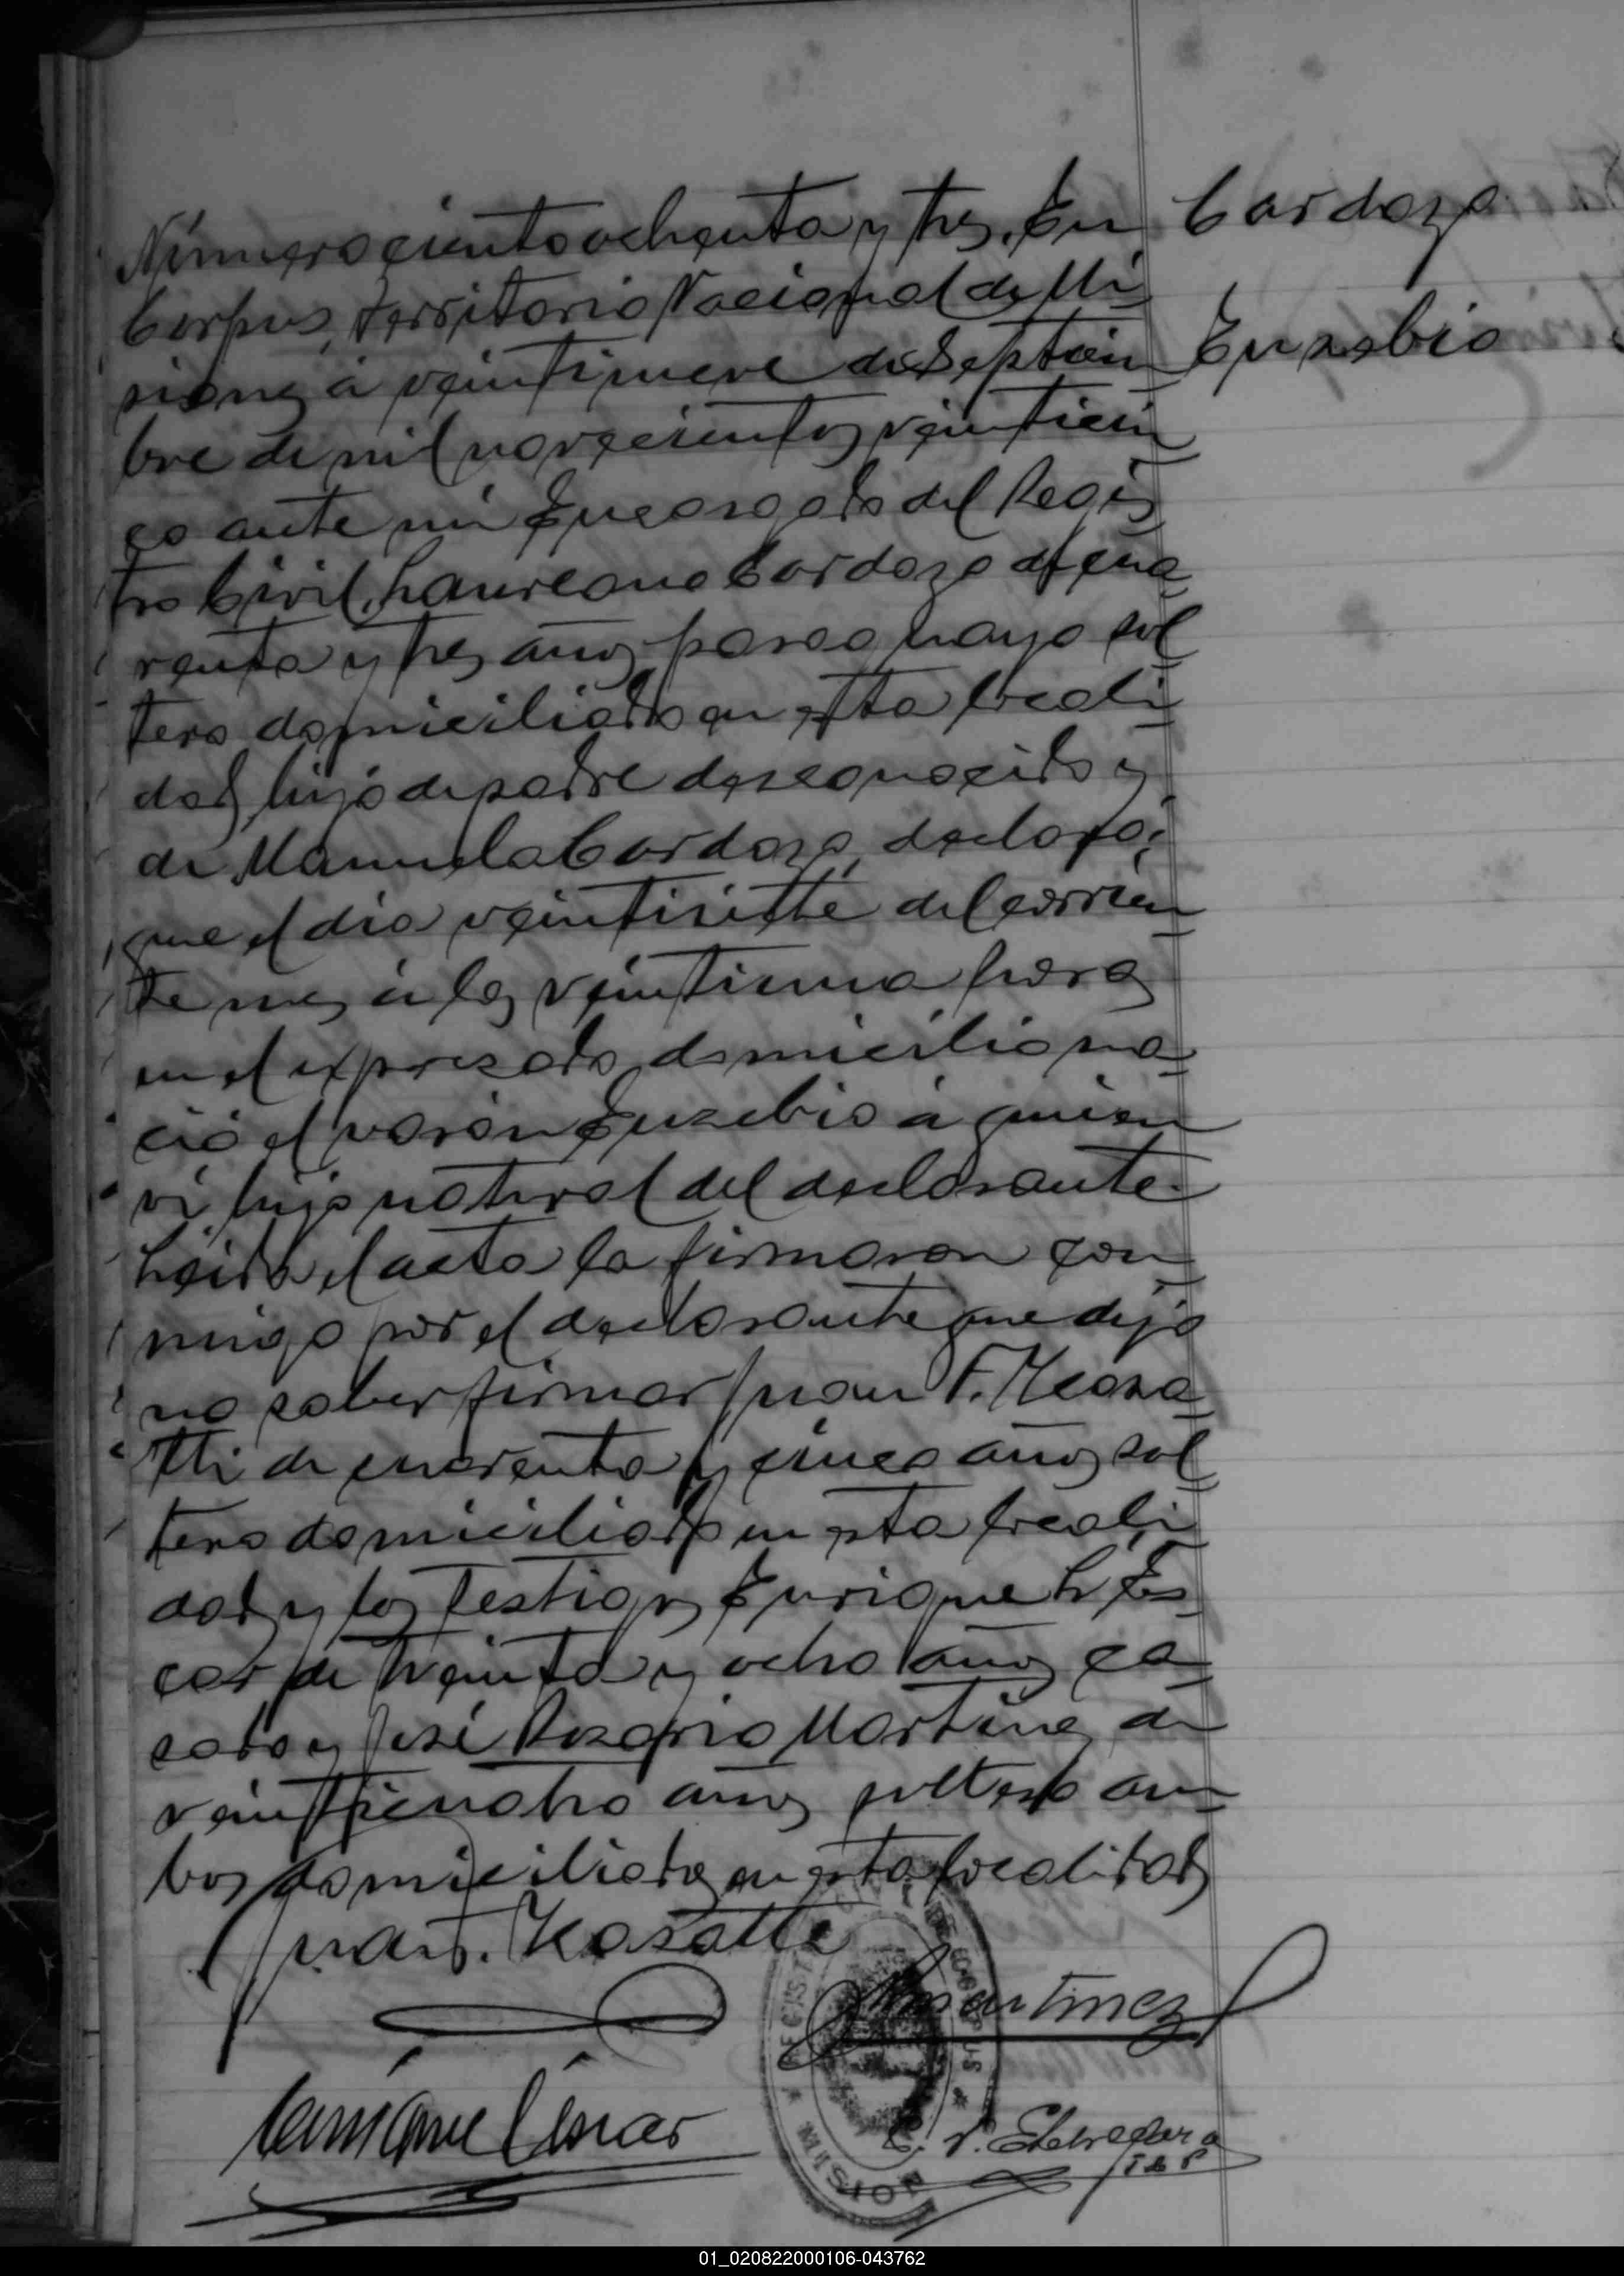 Número ciento ochenta y tres. En
Corpus, Territorio Nacional de Mi
siones a veintinueve de Septiem
bre de mil novecientos veinticin
co ante mi Encargado del Regis
tro Civil, Laureano Cardozo de cua
renta y tres años paraguayo sol
tero domiciliado en esta locali
dad hijo de padre desconocido y
de Manuela Cardozo, declaró:
que el dia veintisiete del corrien
te mes a las veintiuna horas
en el expresado domicilio na
ció el varón Euzebio a quien
vi hijo natural del declarante.
Leida el acta la firmaron con
migo por el declarante que dijo
no saber firmar Juan F.
de cuarenta y cinco años sol
tero domiciliado en esta locali
dad y los testigos Enrique L. Es
car de treinta y ocho años ca
sado y José Rosario Martinez de
veinticuatro años soltero am
bos domiciliados en esta localidad
Cardozo
Euzebio
Juan F.
Martinez
Enrique Escar
MISIONES
01_020822000106-043762